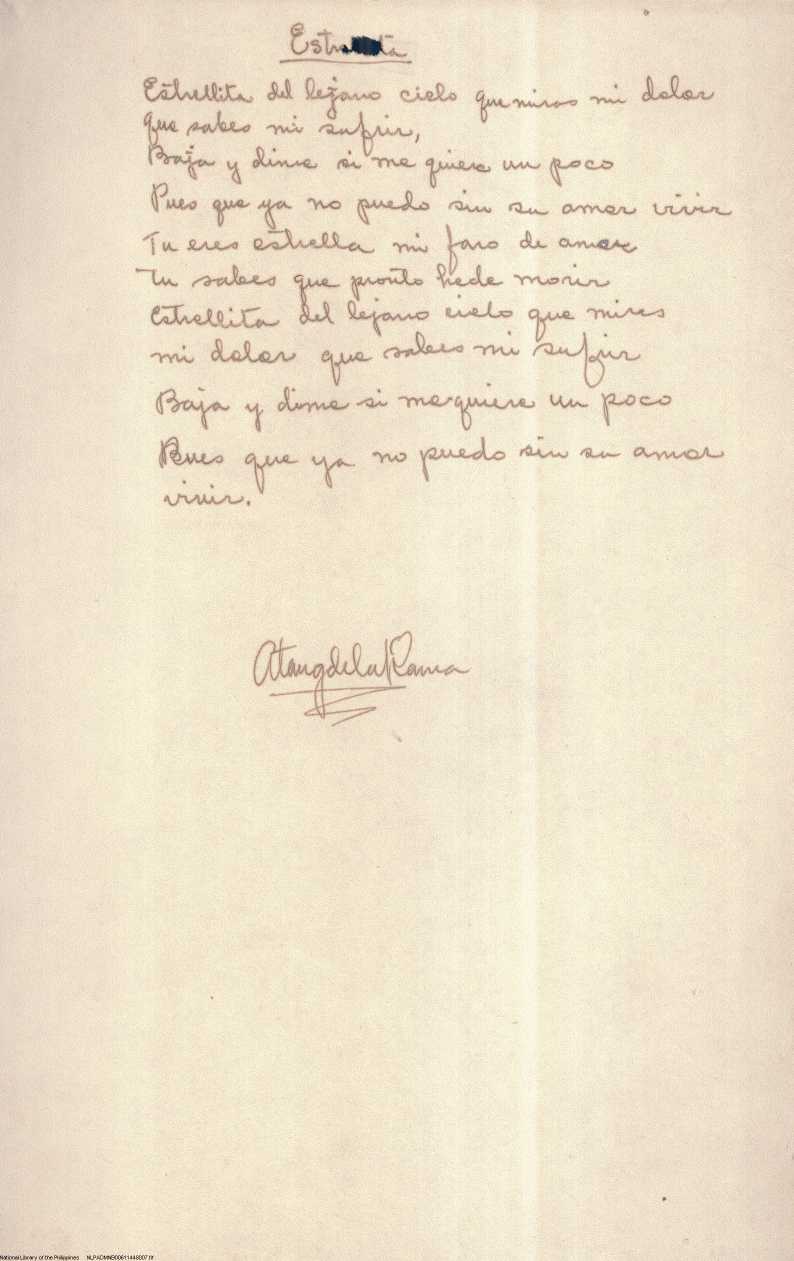 Estrellita
Estrellita del lejano cielo que miras mi dolor
que sabes mi sufrir,
Baja y dime si me quiere un poco
Pues que ya no puedo sin su amor vivir
Tu eres estrella mi faro de amor
Tu sabes que pronto hede morir
Estrellita del lejano cielo que mires
mi dolor que sabes mi sufrir
Baja y dime si me quiere un poco
Pues que ya no puedo sin su amor
vivir.
Atang de la Rama
National Library of the Philippines NLPADMNB00611448007.tif